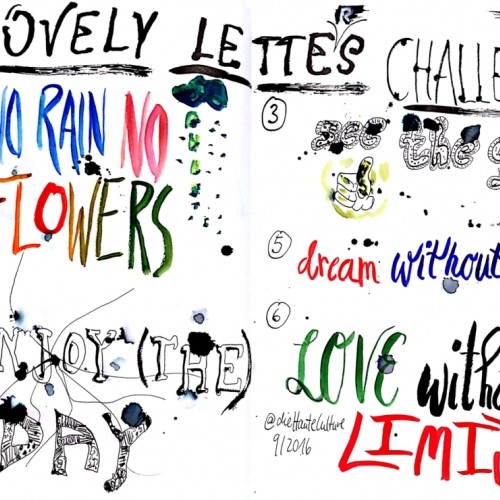 OVELY LETTERS CHALLE
NO RAIN NO
FLOWERS
NJOY (THE)
DAY
3
see the g
5
dream without
6
LOVE witho
LIMI
@dieHauteCulture
9/2016